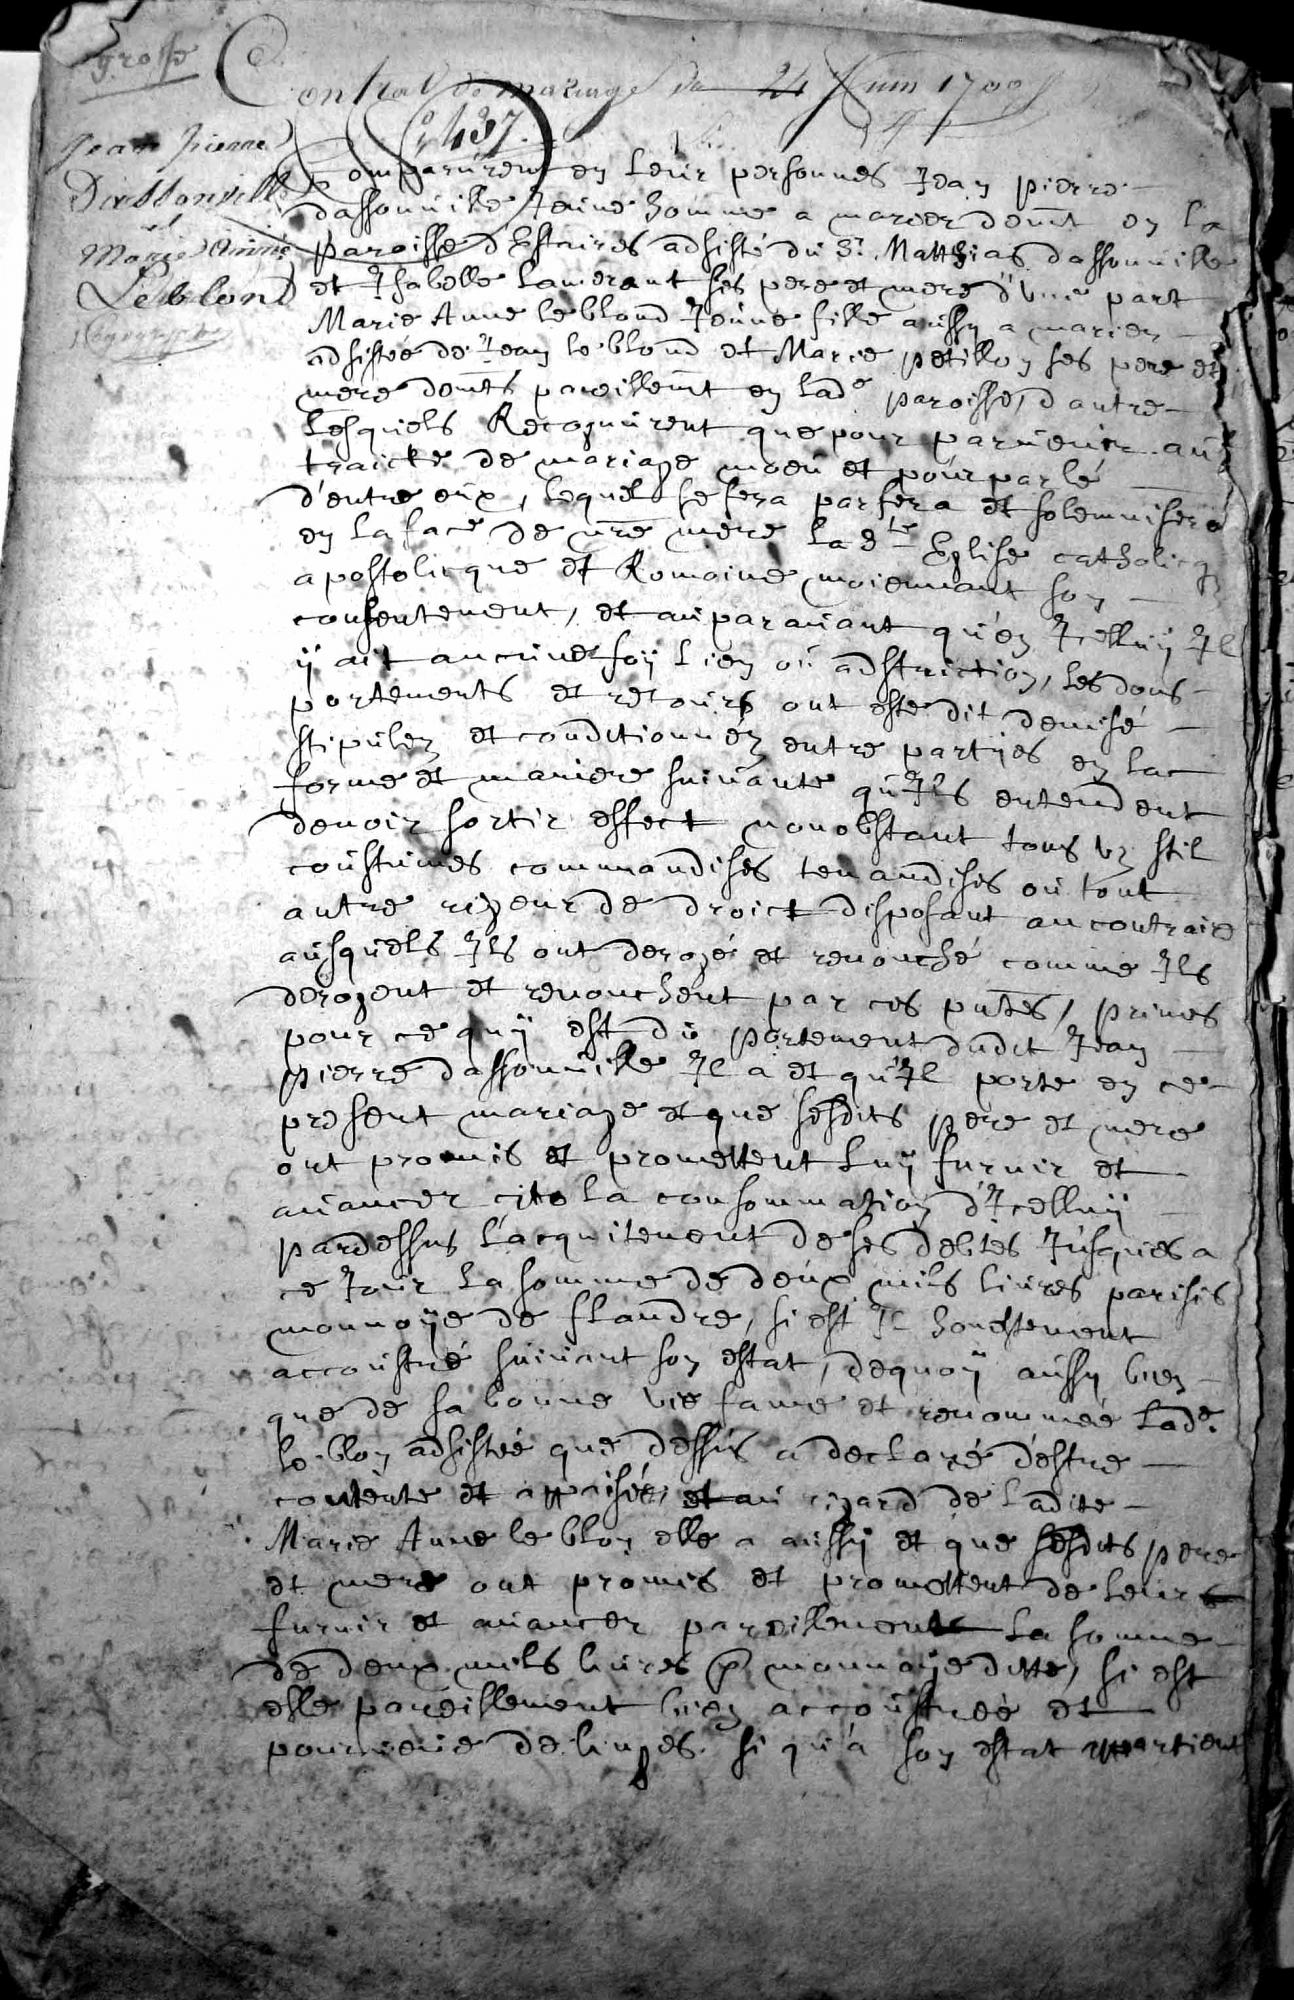 grosse
Contrat de mariage du 24 Juin 1700
437
Jean pierre
Dassonville
et
Marie Anne
Leblond
Comparurent en leur personnes Jean pierre
dassonuille Jeune homme a marier demt en la
paroisse d'Estaires adsisté du Sr. Matthias dassonuille
et Isabelle Lamerant ses pere et mere d'une part
Marie Anne le blond Jeune fille aussy a marier
adsistée de Jean le blond et Marie petillon ses pere et
mere demts pareillemt en lade paroisse, d'autre
Lesquels Recognurent que pour paruenir au
traicté de mariage meu et pourparlé
d'entre eux, lequel se fera parfera et solemnisera
en la face de nre mere la Ste Eglise catholicq
apostolicque et Romaine moiennant son
consentement, et auparauant qu'en Icelluy Il
ÿ ait aucune foÿ lien ou adstriction, les dons
portements et retours ont esté dit deuisé
stipulez et conditionnéz entre partÿes en la
forme et maniere suiuante qu'Ils entendent
deuoir sortir effect nonobstant tous uz stil
coustumes commandises tenandises ou tout
autre rigeur de droict disposant au contraire
ausquels Ils ont derogé et renonché comme Ils
derogent et renonchent par ces pntes, primes
pour ce quÿ est du portement dudit Jean
pierre dassonuille Il a et qu'Il porte en ce
present mariage et que sesdits pere et mere
ont promis et promettent luÿ furnir et
auancer cito la consommation d'Icelluÿ
pardessus l'acquitement de ses debtes Jusques a
ce Jour la somme de deux mils liures parisis
monnoÿe de flandre, si est Il honestement
accoustré suiuant son estat, dequoÿ aussy bien
que de sa bonne vie fame et renommée lade.
le blon adsistée que dessus a declaré d'estre
contente et appaisée, et au regard de ladite
Marie Anne le blon elle a aussÿ et que sesdits pere
et mere ont promis et promettent de leur
furnir et auancer pareillement la somme
de deux mils liures p monnoÿe ditte, si est
elle pareillement bien accoustrée et
pourueue de linges si qu'a son estat appartient